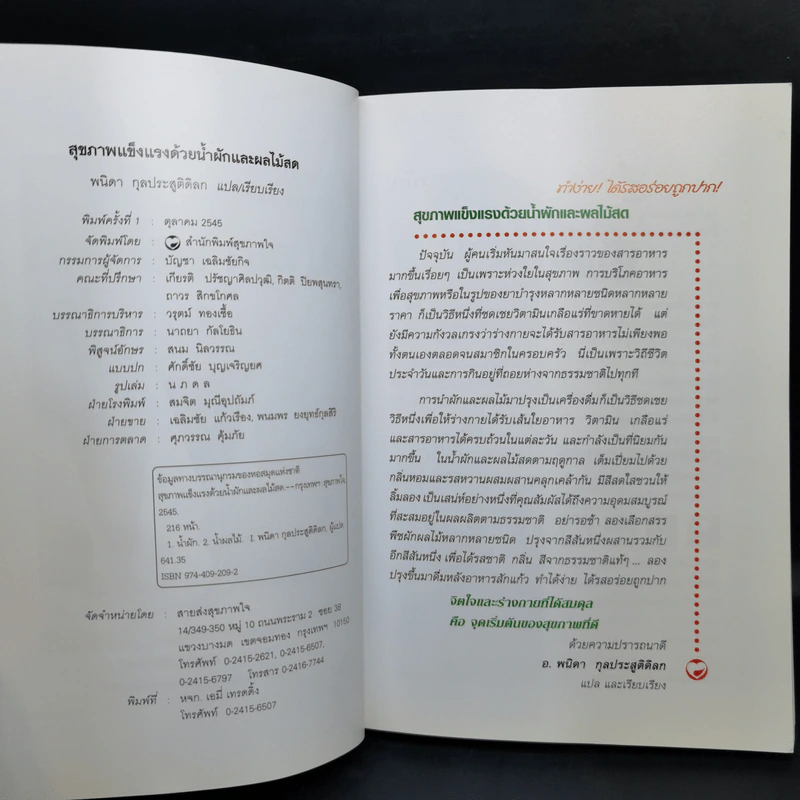 สุขภาพแข็งแรงด้วยน้ำผักและผลไม้สด
พนิดา กุลประสูติดิลก แปล/เรียบเรียง
พิมพ์ครั้งที่ 1 : ตุลาคม 2545
จัดพิมพ์โดย : สำนักพิมพ์สุขภาพใจ
กรรมการผู้จัดการ : บัญชา เฉลิมชัยกิจ
คณะที่ปรึกษา : เกียรติ ปรัชญาศิลปวุฒิ, กิตติ ปิยพสุนทรา,
ถาวร สิกขโกศล
บรรณาธิการบริหาร : วรุตม์ ทองเชื้อ
บรรณาธิการ : นาถยา กัลโยธิน
พิสูจน์อักษร : สนม นิลวรรณ
แบบปก : ศักดิ์ชัย บุญเจริญยศ
รูปเล่ม : น ภ ด ล
ฝ่ายโรงพิมพ์ : สมจิต มุณีอุปถัมภ์
ฝ่ายขาย : เฉลิมชัย แก้วเรือง, พนมพร ยงยุทธ์กุลสิริ
ฝ่ายการตลาด : ศุภวรรณ คุ้มภัย
ข้อมูลทางบรรณานุกรมของหอสมุดแห่งชาติ
สุขภาพแข็งแรงด้วยน้ำผักและผลไม้สด.--กรุงเทพฯ: สุขภาพใจ,
2545.
216 หน้า.
1. น้ำผัก. 2. น้ำผลไม้. I. พนิดา กุลประสูติดิลก, ผู้แปล.
641.35
ISBN 974-409-209-2
จัดจำหน่ายโดย : สายส่งสุขภาพใจ
14/349-350 หมู่ 10 ถนนพระราม 2 ซอย 38
แขวงบางมด เขตจอมทอง กรุงเทพฯ 10150
โทรศัพท์ 0-2415-2621, 0-2415-6507,
0-2415-6797 โทรสาร 0-2416-7744
พิมพ์ที่ : หจก. เอมี่ เทรดดิ้ง
โทรศัพท์ 0-2415-6507
ทำง่าย! ได้รสอร่อยถูกปาก!
สุขภาพแข็งแรงด้วยน้ำผักและผลไม้สด
ปัจจุบัน ผู้คนเริ่มหันมาสนใจเรื่องราวของสารอาหาร
มากขึ้นเรื่อยๆ เป็นเพราะห่วงใยในสุขภาพ การบริโภคอาหาร
เพื่อสุขภาพหรือในรูปของยาบำรุงหลากหลายชนิดหลากหลาย
ราคา ก็เป็นวิธีหนึ่งที่ชดเชยวิตามินเกลือแร่ที่ขาดหายได้ แต่
ยังมีความกังวลเกรงว่าร่างกายจะได้รับสารอาหารไม่เพียงพอ
ทั้งตนเองตลอดจนสมาชิกในครอบครัว นี่เป็นเพราะวิถีชีวิต
ประจำวันและการกินอยู่ที่ถอยห่างจากธรรมชาติไปทุกที
การนำผักและผลไม้มาปรุงเป็นเครื่องดื่มก็เป็นวิธีชดเชย
วิธีหนึ่งเพื่อให้ร่างกายได้รับเส้นใยอาหาร วิตามิน เกลือแร่
และสารอาหารได้ครบถ้วนในแต่ละวัน และกำลังเป็นที่นิยมกัน
มากขึ้น ในน้ำผักและผลไม้สดตามฤดูกาล เต็มเปี่ยมไปด้วย
กลิ่นหอมและรสหวานผสมผสานคลุกเคล้ากัน มีสีสดใสชวนให้
ลิ้มลอง เป็นเสน่ห์อย่างหนึ่งที่คุณสัมผัสได้ถึงความอุดมสมบูรณ์
ที่สะสมอยู่ในผลผลิตตามธรรมชาติ อย่ารอช้า ลองเลือกสรร
พืชผักผลไม้หลากหลายชนิด ปรุงจากสีสันหนึ่งผสานรวมกับ
อีกสีสันหนึ่ง เพื่อได้รสชาติ กลิ่น สีจากธรรมชาติแท้ๆ... ลอง
ปรุงขึ้นมาดื่มหลังอาหารสักแก้ว ทำได้ง่าย ได้รสอร่อยถูกปาก
จิตใจและร่างกายที่ได้สมดุล
คือ จุดเริ่มต้นของสุขภาพที่ดี
ด้วยความปรารถนาดี
อ. พนิดา กุลประสูติดิลก
แปล และเรียบเรียง